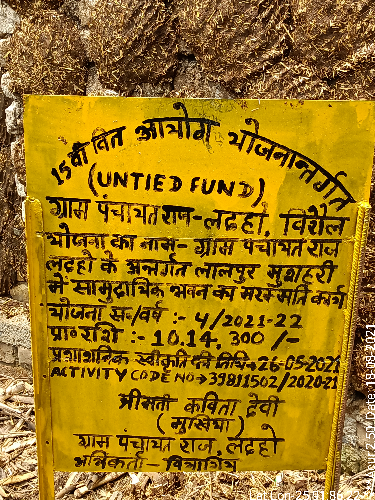 15 वी वित आयोग योजनान्तर्गत
(UNTIED FUND)
ग्राम पंचायत राज-लदहो, बिरौल
योजना का नाम- ग्राम पंचायत राज
लदहो के अन्तर्गत लालपुर मुशहरी
में सामुदायिक भवन का मरम्मति कार्य
योजना सं०/वर्ष :- 4/2021-22
प्रा० राशि :- 10,14,300/-
प्रशाशनिक स्वीकृति की तिथि→26-05-2021
ACTIVITY CODE NO→39811502/2020-21
श्रीमती कविता देवी
(मुखिया)
ग्राम पंचायत राज, लदहो
अभिकर्ता-